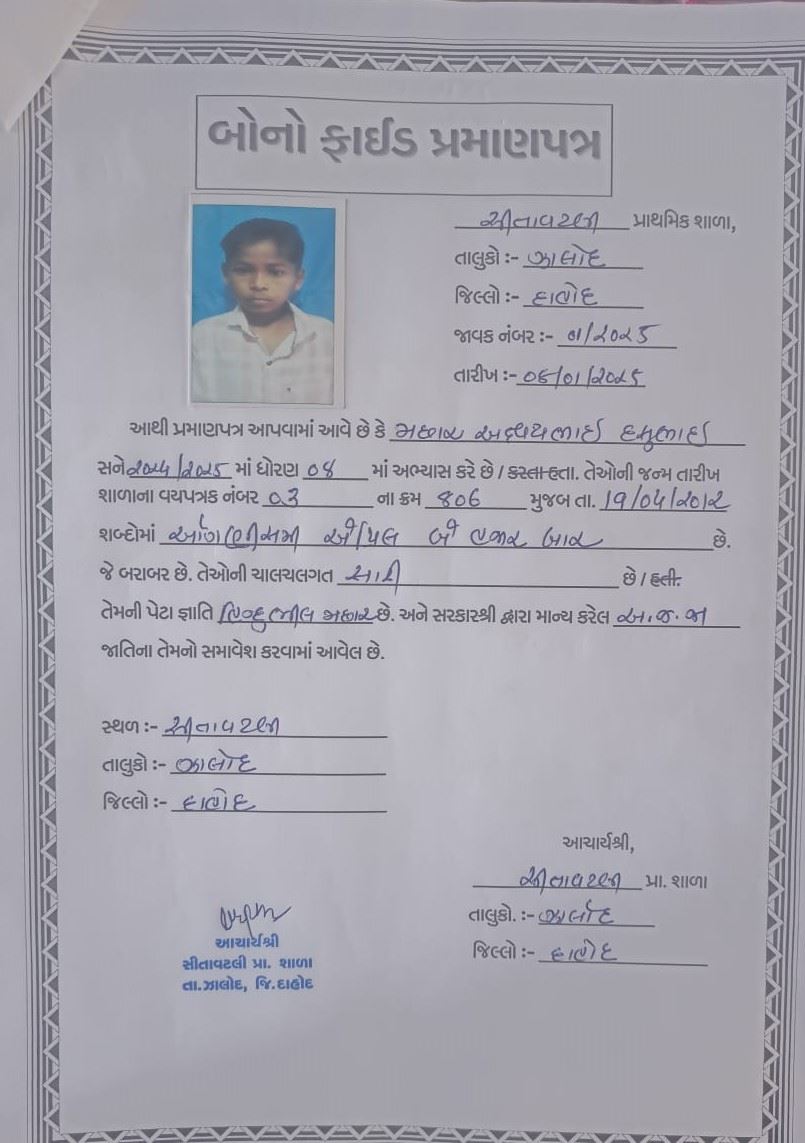 બોનો ફાઈડ પ્રમાણપત્ર
સીતાવટલી પ્રાથમિક શાળા,
તાલુકો :- ઝાલોદ
જિલ્લો :- દાહોદ
જાવક નંબર :- ૦૧/૨૦૨૫
તારીખ :- ૦૬/૦૧/૨૦૨૫
આથી પ્રમાણપત્ર આપવામાં આવે છે કે મછાર
સને ૨૦૨૪/૨૦૨૫ માં ધોરણ માં અભ્યાસ કરે છે / કરતા હતા. તેઓની જન્મ તારીખ
શાળાના વયપત્રક નંબર ૦૩ ના ક્રમ ૪૦૬ મુજબ તા. 19/04/૨૦૧૨
શબ્દોમાં ઓગણીસમી એપ્રિલ બે હજાર બાર છે.
જે બરાબર છે. તેઓની ચાલચલગત સારી છે / હતી.
તેમની પેટા જ્ઞાતિ હિન્દુ ભીલ મછાર છે. અને સરકારશ્રી દ્વારા માન્ય કરેલ અ.જ.જા
જાતિના તેમનો સમાવેશ કરવામાં આવેલ છે.
સ્થળ :- સીતાવટલી
તાલુકો :- ઝાલોદ
જિલ્લો :- દાહોદ
આચાર્યશ્રી,
સીતાવટલી પ્રા. શાળા
તાલુકો. :- ઝાલોદ
જિલ્લો :- દાહોદ
આચાર્યશ્રી
સીતાવટલી પ્રા. શાળા
તા.ઝાલોદ, જિ.દાહોદ